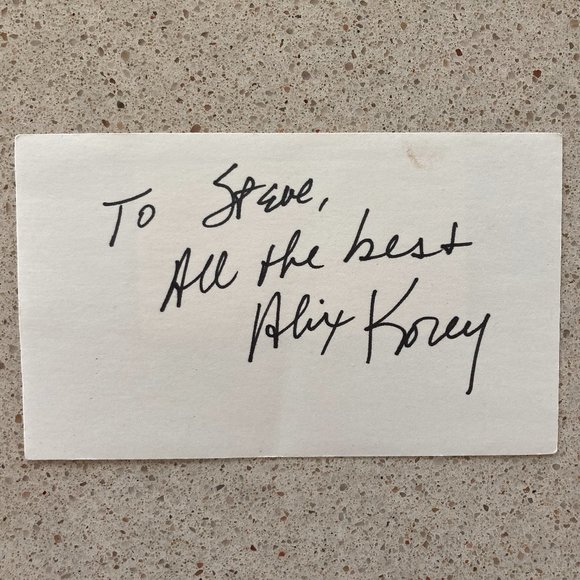 To Steve,
All the best
Alix Korey